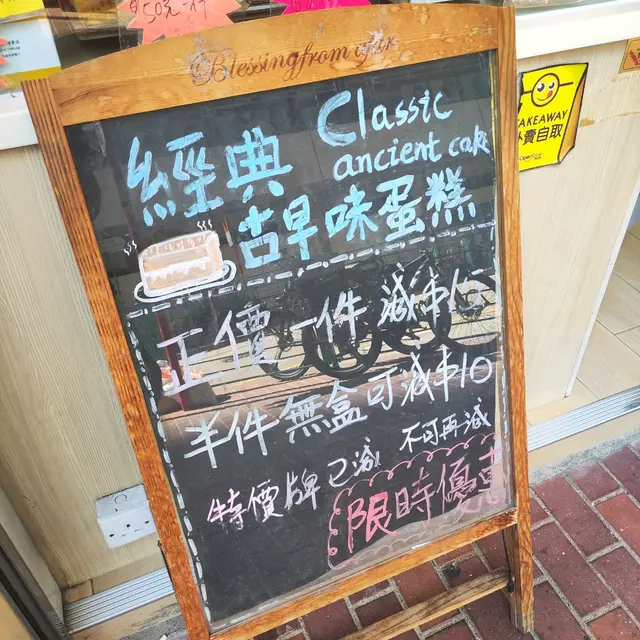 50元一件
Blessing from our
經典
Classic
ancient cake
古早味蛋糕
正價一件減$15
半件無盒可減$10
特價牌已減 不可再減
限時優惠
TAKEAWAY
外賣自取